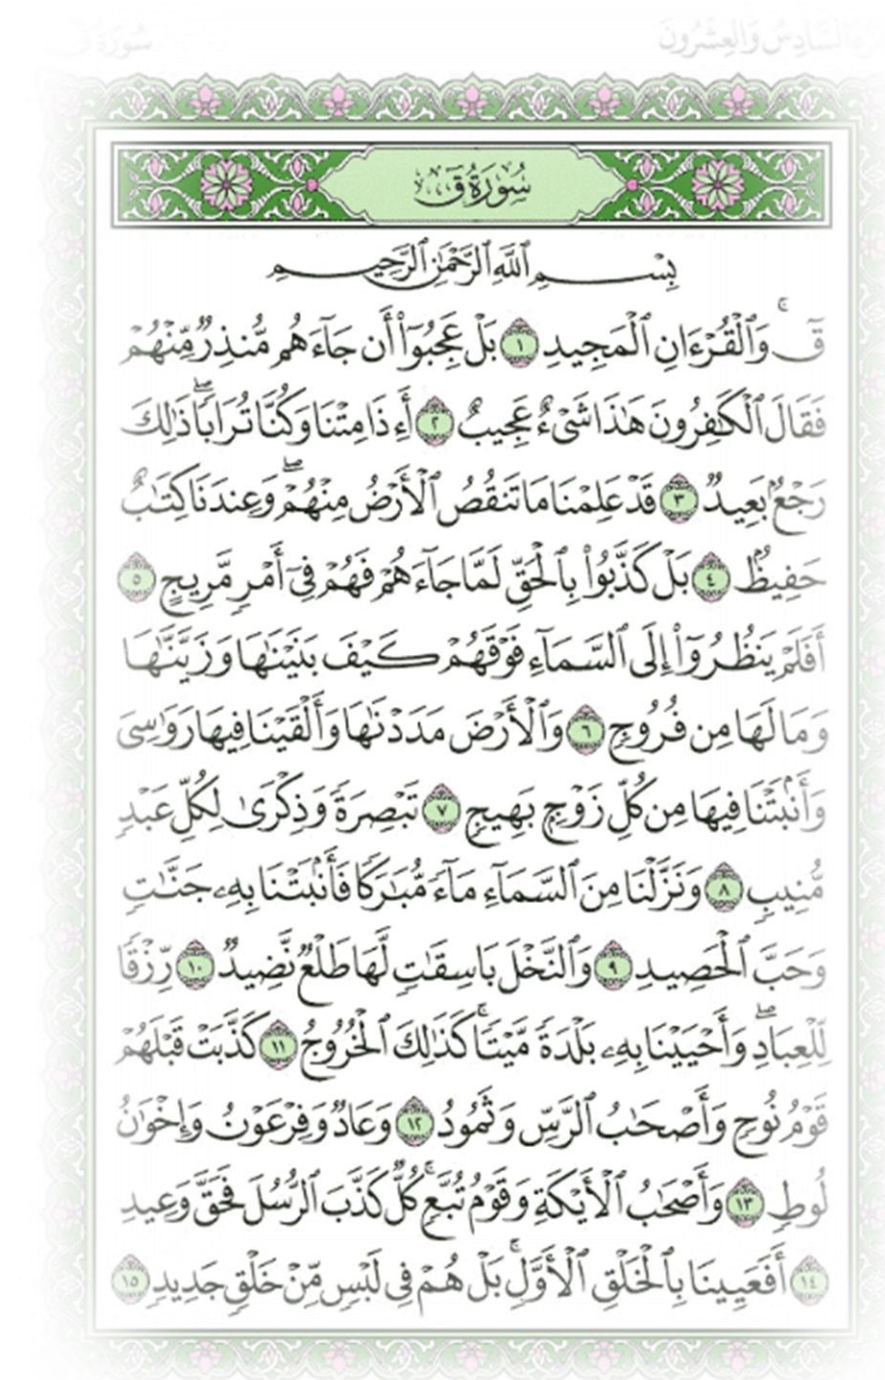 سُورَةُ ق الجُزْءُ السَّادِسُ وَالعِشْرُونَ
سُورَةُ قٓ
بِسْمِ ٱللَّهِ ٱلرَّحْمَٰنِ ٱلرَّحِيمِ
قٓۚ وَٱلْقُرْءَانِ ٱلْمَجِيدِ ١ بَلْ عَجِبُوٓا۟ أَن جَآءَهُم مُّنذِرٌ مِّنْهُمْ
فَقَالَ ٱلْكَٰفِرُونَ هَٰذَا شَىْءٌ عَجِيبٌ ٢ أَءِذَا مِتْنَا وَكُنَّا تُرَابًاۖ ذَٰلِكَ
رَجْعٌۢ بَعِيدٌ ٣ قَدْ عَلِمْنَا مَا تَنقُصُ ٱلْأَرْضُ مِنْهُمْۖ وَعِندَنَا كِتَٰبٌ
حَفِيظٌۢ ٤ بَلْ كَذَّبُوا۟ بِٱلْحَقِّ لَمَّا جَآءَهُمْ فَهُمْ فِىٓ أَمْرٍ مَّرِيجٍ ٥
أَفَلَمْ يَنظُرُوٓا۟ إِلَى ٱلسَّمَآءِ فَوْقَهُمْ كَيْفَ بَنَيْنَٰهَا وَزَيَّنَّٰهَا
وَمَا لَهَا مِن فُرُوجٍ ٦ وَٱلْأَرْضَ مَدَدْنَٰهَا وَأَلْقَيْنَا فِيهَا رَوَٰسِىَ
وَأَنۢبَتْنَا فِيهَا مِن كُلِّ زَوْجٍۭ بَهِيجٍ ٧ تَبْصِرَةً وَذِكْرَىٰ لِكُلِّ عَبْدٍ
مُّنِيبٍ ٨ وَنَزَّلْنَا مِنَ ٱلسَّمَآءِ مَآءً مُّبَٰرَكًا فَأَنۢبَتْنَا بِهِۦ جَنَّٰتٍ
وَحَبَّ ٱلْحَصِيدِ ٩ وَٱلنَّخْلَ بَاسِقَٰتٍ لَّهَا طَلْعٌ نَّضِيدٌ ١٠ رِّزْقًا
لِّلْعِبَادِۖ وَأَحْيَيْنَا بِهِۦ بَلْدَةً مَّيْتًاۚ كَذَٰلِكَ ٱلْخُرُوجُ ١١ كَذَّبَتْ قَبْلَهُمْ
قَوْمُ نُوحٍ وَأَصْحَٰبُ ٱلرَّسِّ وَثَمُودُ ١٢ وَعَادٌ وَفِرْعَوْنُ وَإِخْوَٰنُ
لُوطٍ ١٣ وَأَصْحَٰبُ ٱلْأَيْكَةِ وَقَوْمُ تُبَّعٍۚ كُلٌّ كَذَّبَ ٱلرُّسُلَ فَحَقَّ وَعِيدِ
١٤ أَفَعَيِينَا بِٱلْخَلْقِ ٱلْأَوَّلِۚ بَلْ هُمْ فِى لَبْسٍ مِّنْ خَلْقٍ جَدِيدٍ ١٥